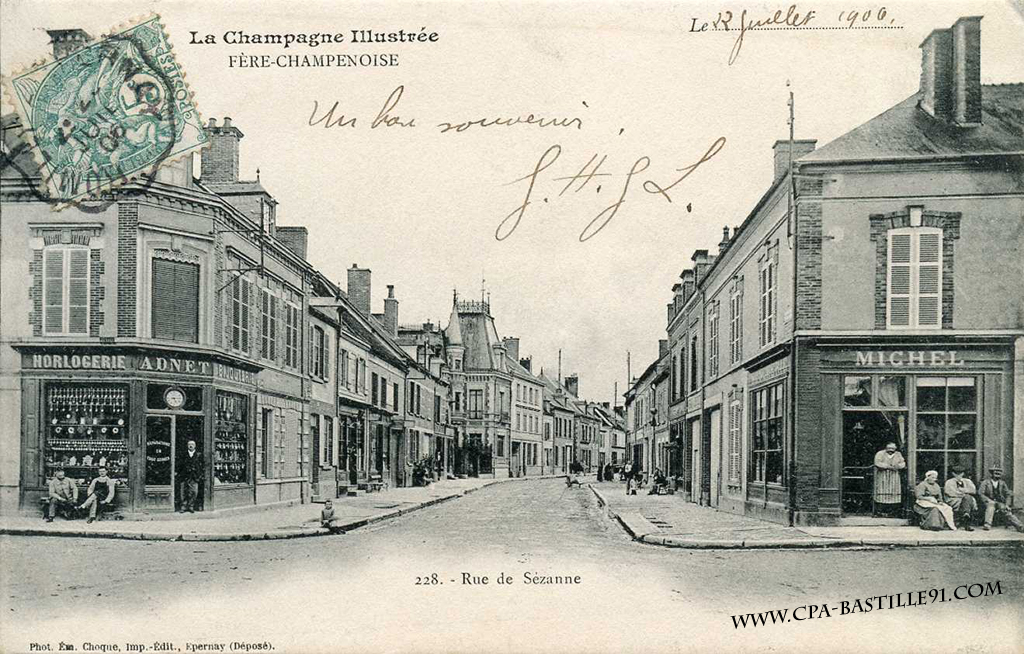 La Champagne Illustrée
FÈRE-CHAMPENOISE
Le 22 Juillet 1906.
Un bon souvenir.
HORLOGERIE ADNET BIJOUTERIE
MICHEL
228. - Rue de Sézanne
WWW.CPA-BASTILLE91.COM
Phot. Ém. Choque, Imp.-Édit., Epernay (Déposé).